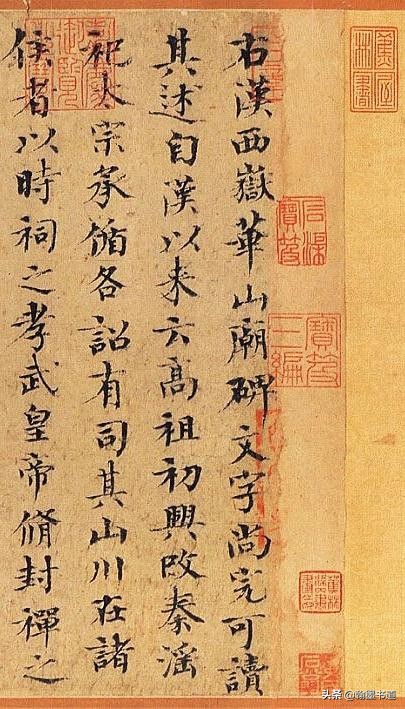 右漢西嶽華山廟碑文字尚完可讀
其述自漢以來云高祖初興改秦淫
祀太宗承循各詔有司其山川在諸
侯者以時祠之孝武皇帝脩封禪之
石渠寶笈
寶笈三編
头条 @翰墨书道